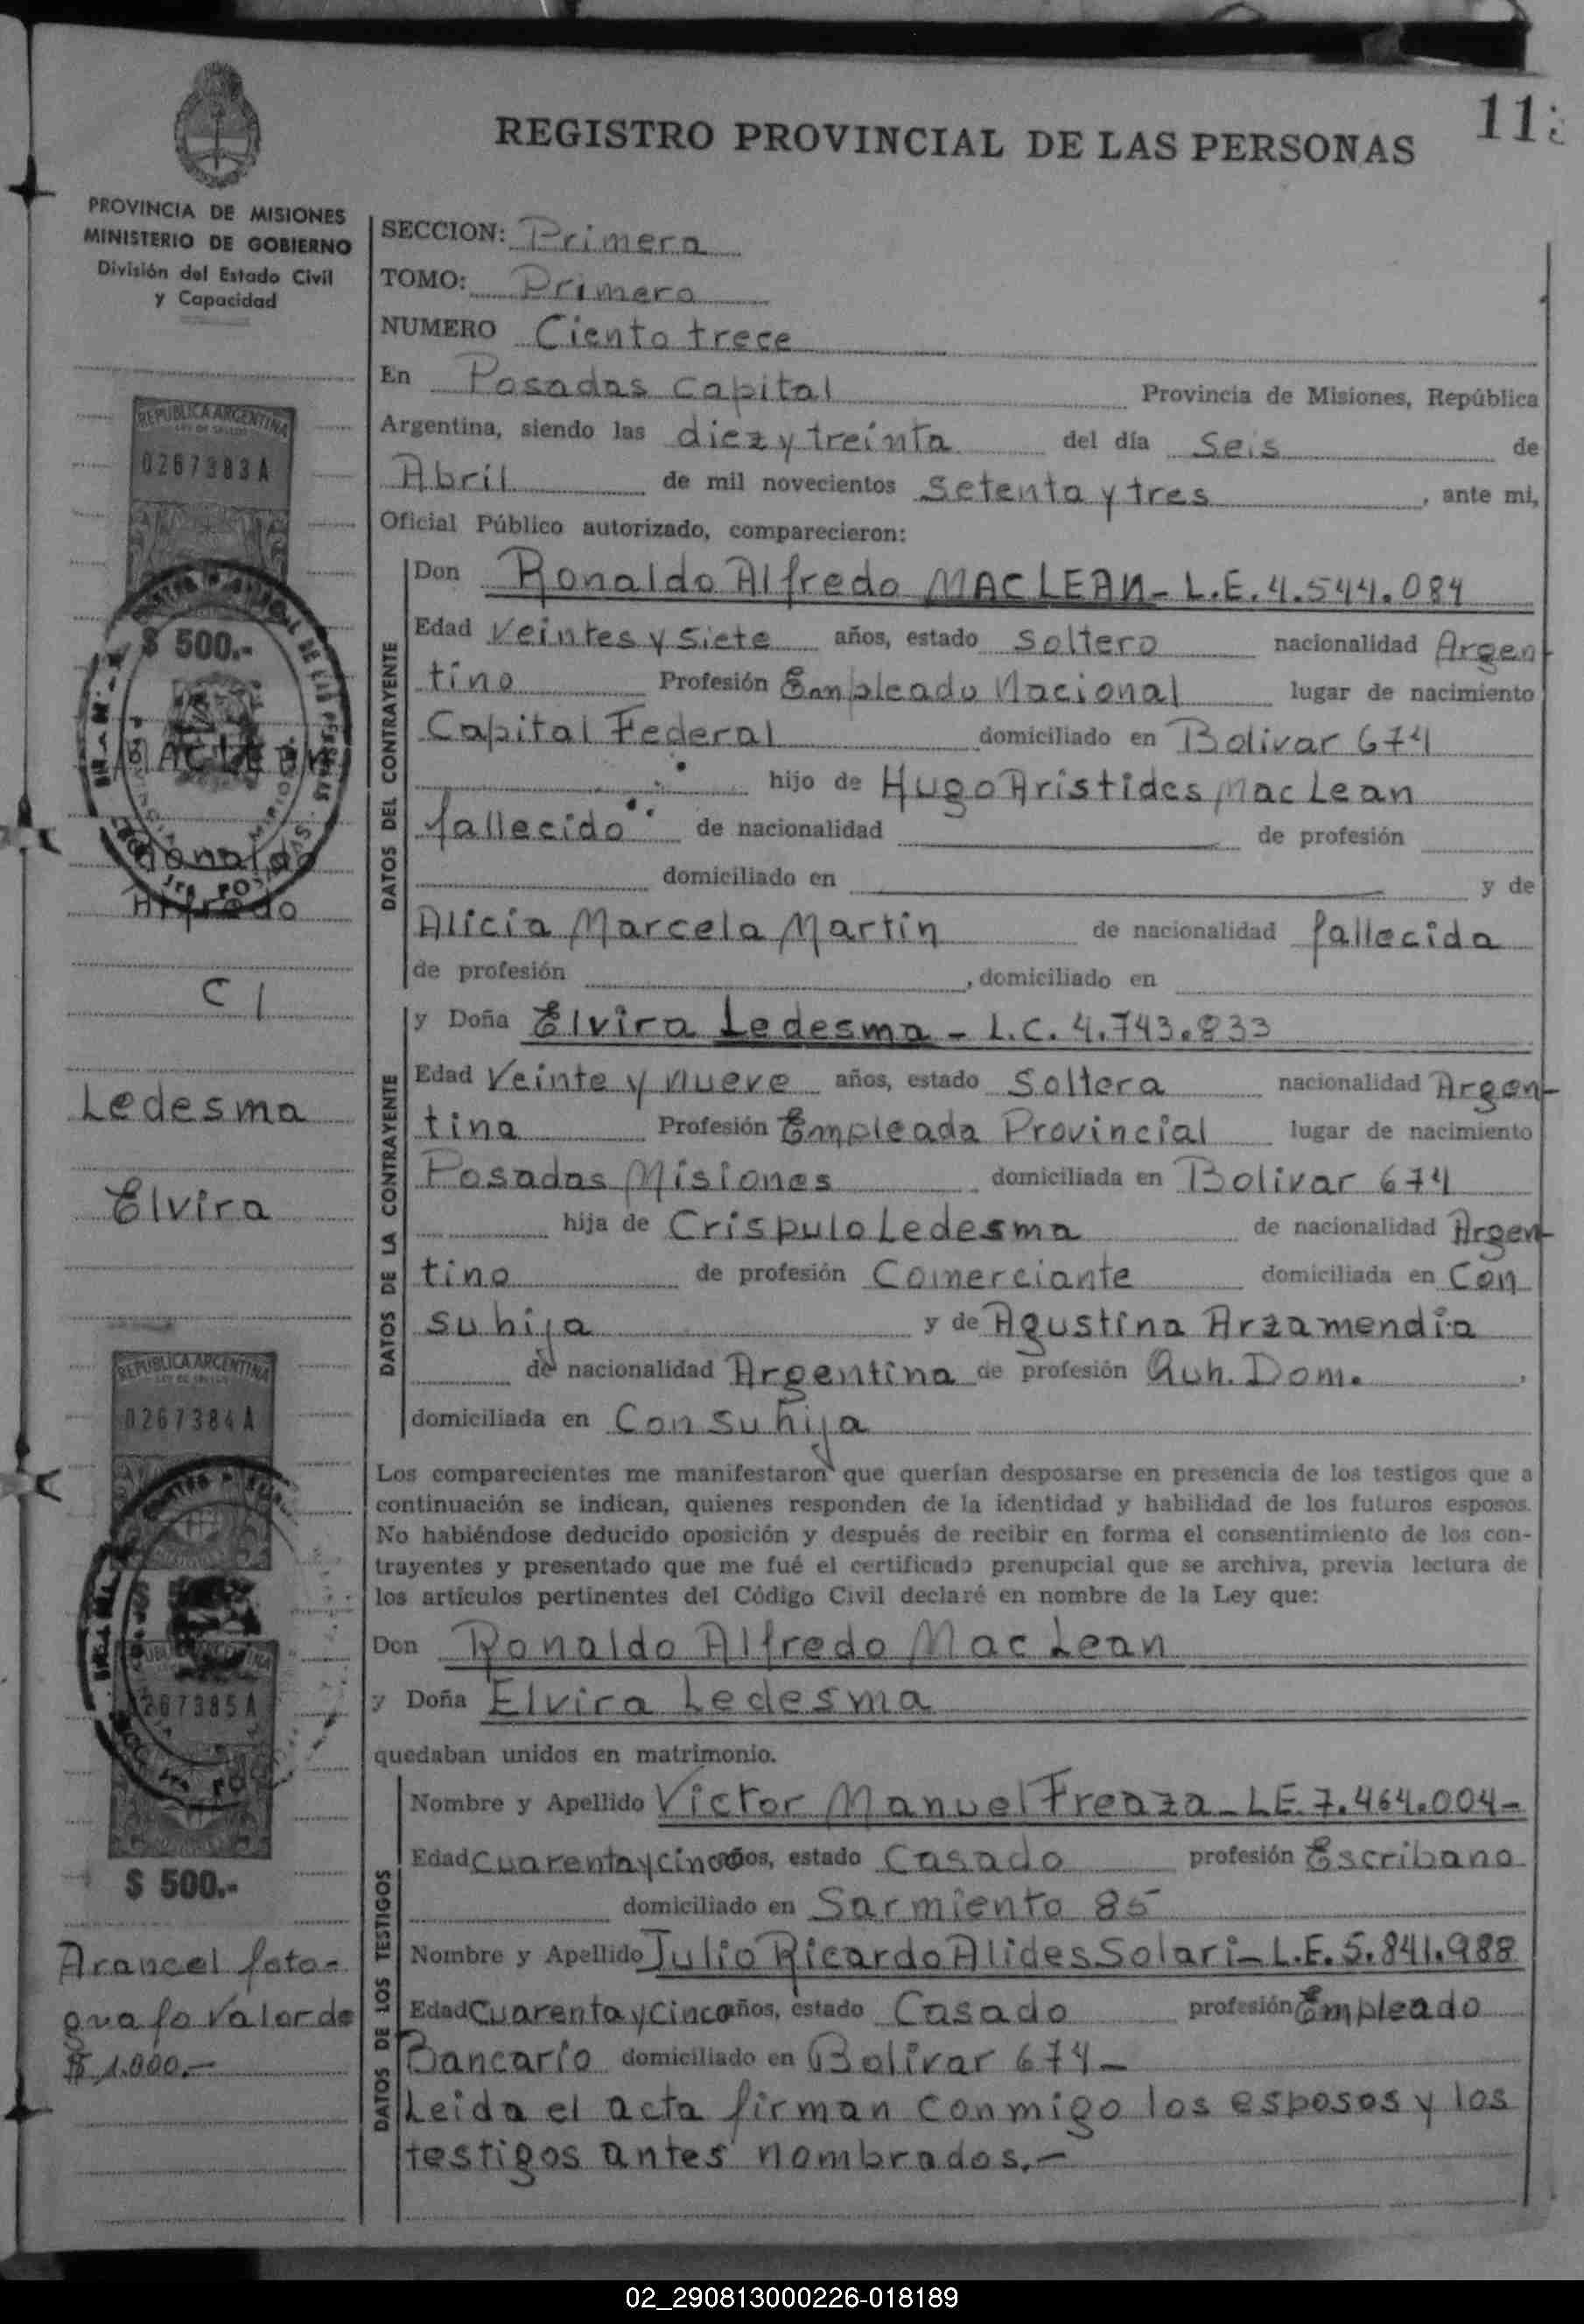 REGISTRO PROVINCIAL DE LAS PERSONAS
11
PROVINCIA DE MISIONES
MINISTERIO DE GOBIERNO
División del Estado Civil
y Capacidad
SECCION: Primera
TOMO: Primero
NUMERO Ciento trece
En Posadas capital Provincia de Misiones, República
Argentina, siendo las diez y treinta del día Seis de
Abril de mil novecientos setenta y tres, ante mi,
Oficial Público autorizado, comparecieron:
DATOS DEL CONTRAYENTE
Don Ronaldo Alfredo MACLEAN - L.E. 4.544.084
Edad Veintes y siete años, estado soltero nacionalidad Argen
tino Profesión Empleado Nacional lugar de nacimiento
Capital Federal domiciliado en Bolivar 674
hijo de Hugo Aristides Mac Lean
fallecido de nacionalidad de profesión
domiciliado en y de
Alicia Marcela Martin de nacionalidad fallecida
de profesión , domiciliado en
DATOS DE LA CONTRAYENTE
y Doña Elvira Ledesma - L.C. 4.743.833
Edad Veinte y nueve años, estado Soltera nacionalidad Argen-
tina Profesión Empleada Provincial lugar de nacimiento
Posadas Misiones domiciliada en Bolivar 674
hija de Crispulo Ledesma de nacionalidad Argen-
tino de profesión Comerciante domiciliada en Con
su hija y de Agustina Arzamendia
de nacionalidad Argentina de profesión Quh. Dom.,
domiciliada en Con su hija
Los comparecientes me manifestaron que querían desposarse en presencia de los testigos que a
continuación se indican, quienes responden de la identidad y habilidad de los futuros esposos.
No habiéndose deducido oposición y después de recibir en forma el consentimiento de los con-
trayentes y presentado que me fué el certificado prenupcial que se archiva, previa lectura de
los artículos pertinentes del Código Civil declaré en nombre de la Ley que:
Don Ronaldo Alfredo Mac Lean
y Doña Elvira Ledesma
quedaban unidos en matrimonio.
DATOS DE LOS TESTIGOS
Nombre y Apellido Victor Manuel Freaza - L.E. 7.464.004-
Edad Cuarenta y cinco años, estado Casado profesión Escribano
domiciliado en Sarmiento 85
Nombre y Apellido Julio Ricardo Alides Solari - L.E. 5.841.988
Edad Cuarenta y Cinco años, estado Casado profesión Empleado
Bancario domiciliado en Bolivar 674-
Leida el acta firman conmigo los esposos y los
testigos antes nombrados.-
REPUBLICA ARGENTINA
LEY DE SELLOS
0267383A
$ 500.-
MACLEAN
Ronaldo
Alfredo
C/
Ledesma
Elvira
REPUBLICA ARGENTINA
LEY DE SELLOS
0267384A
0267385A
$ 500.-
Arancel foto-
guafo Valor de
$ 1.000.-
02_290813000226-018189